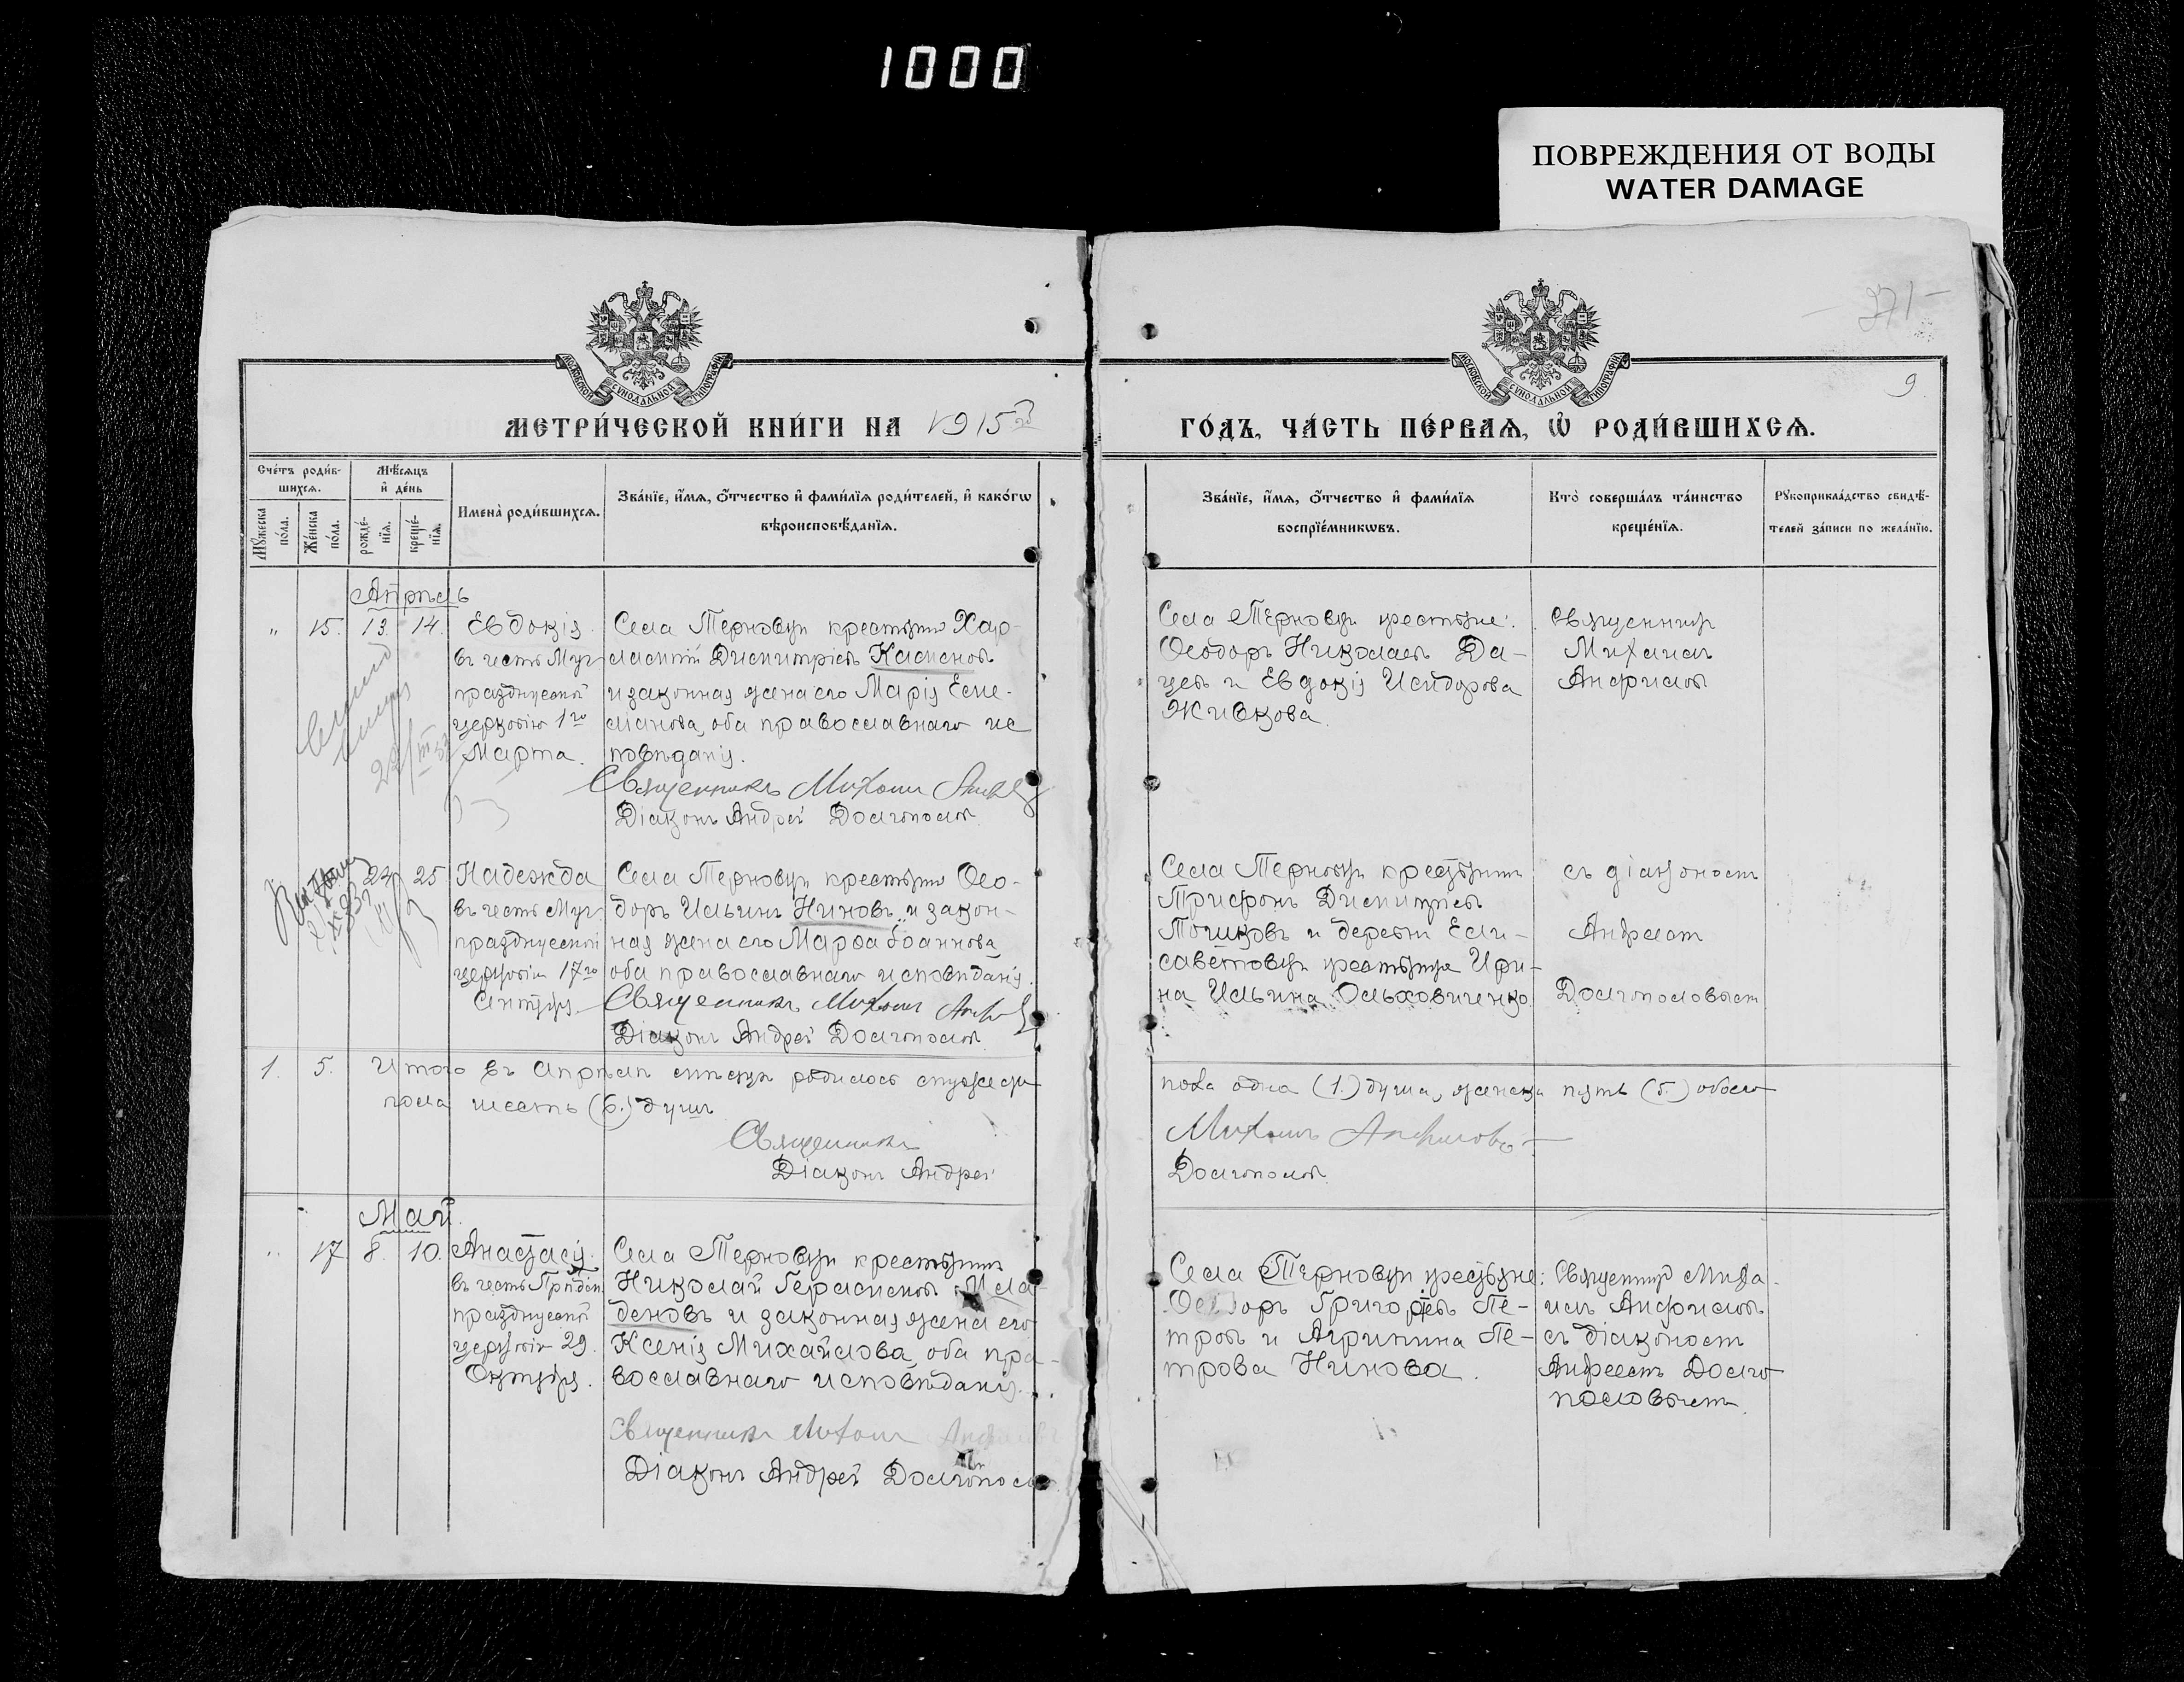 1000
ПОВРЕЖДЕНИЯ ОТ ВОДЫ
WATER DAMAGE
271
9
МОСКОВСКОЙ СУНОДАЛЬНОЙ ТИПОГРАФІИ
МОСКОВСКОЙ СУНОДАЛЬНОЙ ТИПОГРАФІИ
МЕТРИ́ЧЕСКОЙ КНИ́ГИ НА 1915 го
ГО́ДЪ, ЧА́СТЬ ПЕ́РВАѦ, Ѡ҆ РОДИ́ВШИХСѦ.
Сче́тъ роди́в-
шихсѧ.
Мѣ́сѧцъ
и҆ де́нь
Мꙋ́жеска по́ла.
Же́нска по́ла.
рожде́-нїѧ.
креще́-нїѧ.
Имена̀ роди́вшихсѧ.
Зва́нїе, и҆́мѧ, ѻ҆́тчество и҆ фами́лїѧ роди́телей, и҆ како́гѡ
вѣроисповѣ́данїѧ.
Зва́нїе, и҆́мѧ, ѻ҆́тчество и҆ фами́лїѧ
воспрїе́мникѡвъ.
Кто̀ соверша́лъ та́инство
креще́нїѧ.
Рꙋкоприкла́дство свидѣ́-
телей за́писи по жела́нїю.
Апрѣль
" 15. 13. 14. Евдокія
въ честь Муч.
празднуемой
церковію 1го
Марта.
Села Терновки крестьян. Хар-
лампій Димитріевъ Касимовъ
и законная жена его Марія Еме-
ліанова, оба православнаго ис
повѣданія.
Священникъ Михаилъ
Діаконъ Андрей Долгополовъ
Села Терновки крестьяне:
Ѳеодоръ Николаевъ Да-
цевъ и Евдокія Исидорова
Живкова.
Священникъ
Михаилъ
Анфиловъ
24 25 Надежда
въ честь Муч.
празднуемой
церковію 17го
Сентября.
Села Терновки крестьян. Ѳео-
доръ Ильинъ Ниновъ и закон-
ная жена его Марѳа Іоаннова
оба православнаго исповѣданія.
Священникъ Михаилъ
Діаконъ Андрей Долгополовъ
Села Терновки крестьянинъ
Трифонъ Димитріевъ
Тошковъ и деревни Ели-
саветовки крестьянка Ири-
на Ильина Ольховиченко.
съ діакономъ
Андреемъ
Долгополовымъ
1. 5. Итого въ Апрѣлѣ мѣсяцѣ родилось мужеска
пола одна (1.) душа, женска пять (5.) обоего
пола шесть (6.) душъ
Священникъ
Михаилъ Анфиловъ
Діаконъ Андрей
Долгополовъ
Май
" 17 8. 10. Анастасія
въ честь Прпдоб.
празднуемой
церковію 29.
Октября.
Села Терновки крестьянинъ
Николай Герасимовъ Мла
деновъ и законная жена его
Ксенія Михайлова, оба пра-
вославнаго исповѣданія.
Священникъ Михаилъ
Діаконъ Андрей Долгополовъ
Села Терновки крестьяне:
Ѳеодоръ Григорьевъ Пе-
тровъ и Агрипина Пе-
трова Нинова.
Священникъ Миха-
илъ Анфиловъ
съ діакономъ
Андреемъ Долго
половымъ